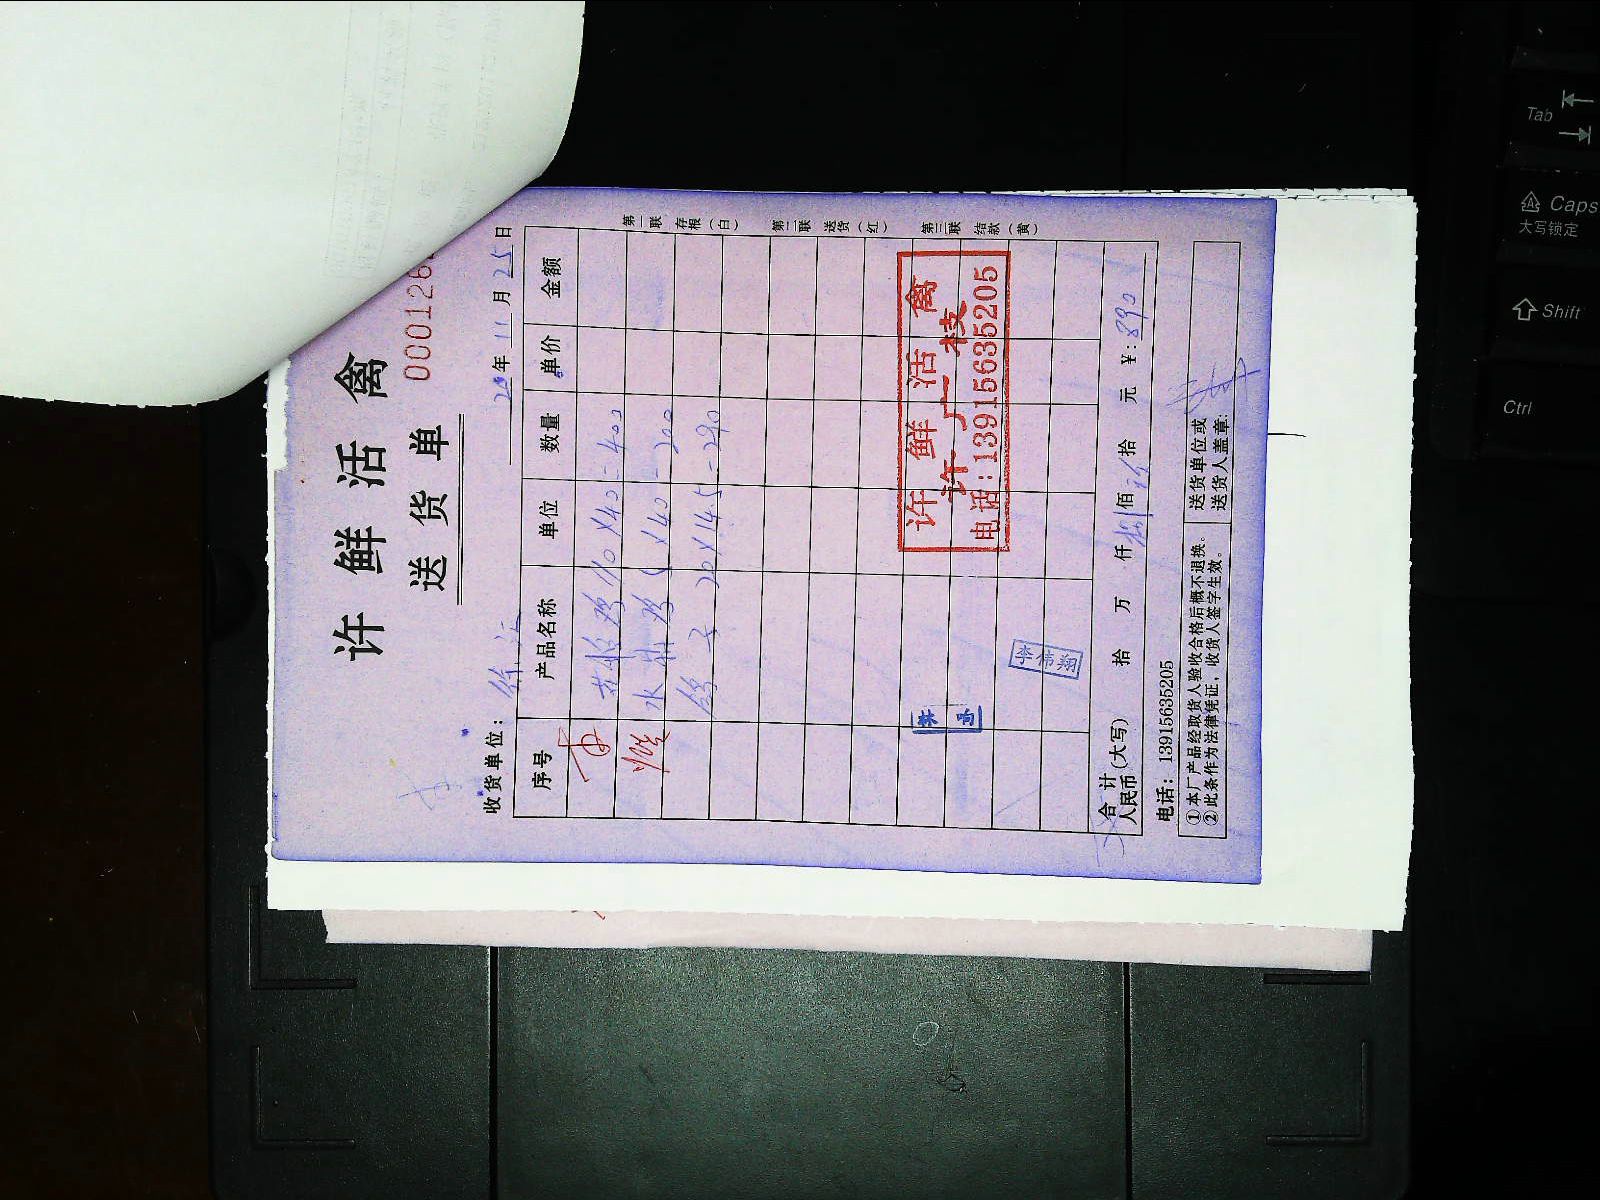 许鲜活禽
送货单
000126
收货单位：徐汇 20年11月25日
序号 产品名称 单位 数量 单价 金额
草鸡 10×40=400
水鸡 5×40=200
鸽子 20×14.5=290
第一联 存根（白）
第二联 送货（红）
第三联 结款（黄）
许鲜活禽
许广枝
电话：13915635205
李伟翔
合计
人民币(大写) 拾 万 仟 捌佰玖拾 元 ¥：890
电话：13915635205
①本厂产品经取货人验收合格后概不退换。
②此条作为法律凭证，收货人签字生效。
送货单位或
送货人盖章:
Tab
Caps
大写锁定
Shift
Ctrl